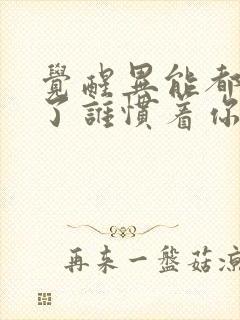 覺醒異能都
了誰慣着你
再来一盤菇凉